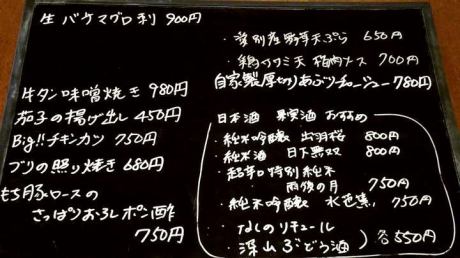 生バチマグロ刺 900円
牛タン味噌焼き 980円
茄子の揚げ出し 450円
Big!!チキンカツ 750円
ブリの照り焼き 680円
もち豚ロースの
さっぱりおろしポン酢
750円
・愛別産舞茸天ぷら 650円
・鶏ササミ天 梅肉ソース 700円
自家製厚切りあぶりチャーシュー 780円
日本酒 果実酒 おすすめ
・純米吟醸 出羽桜 800円
・純米酒 日下無双 800円
・超辛口特別純米
雨後の月 750円
・純米吟醸 水芭蕉 750円
・なしのリキュール
・深山ぶどう酒
各550円